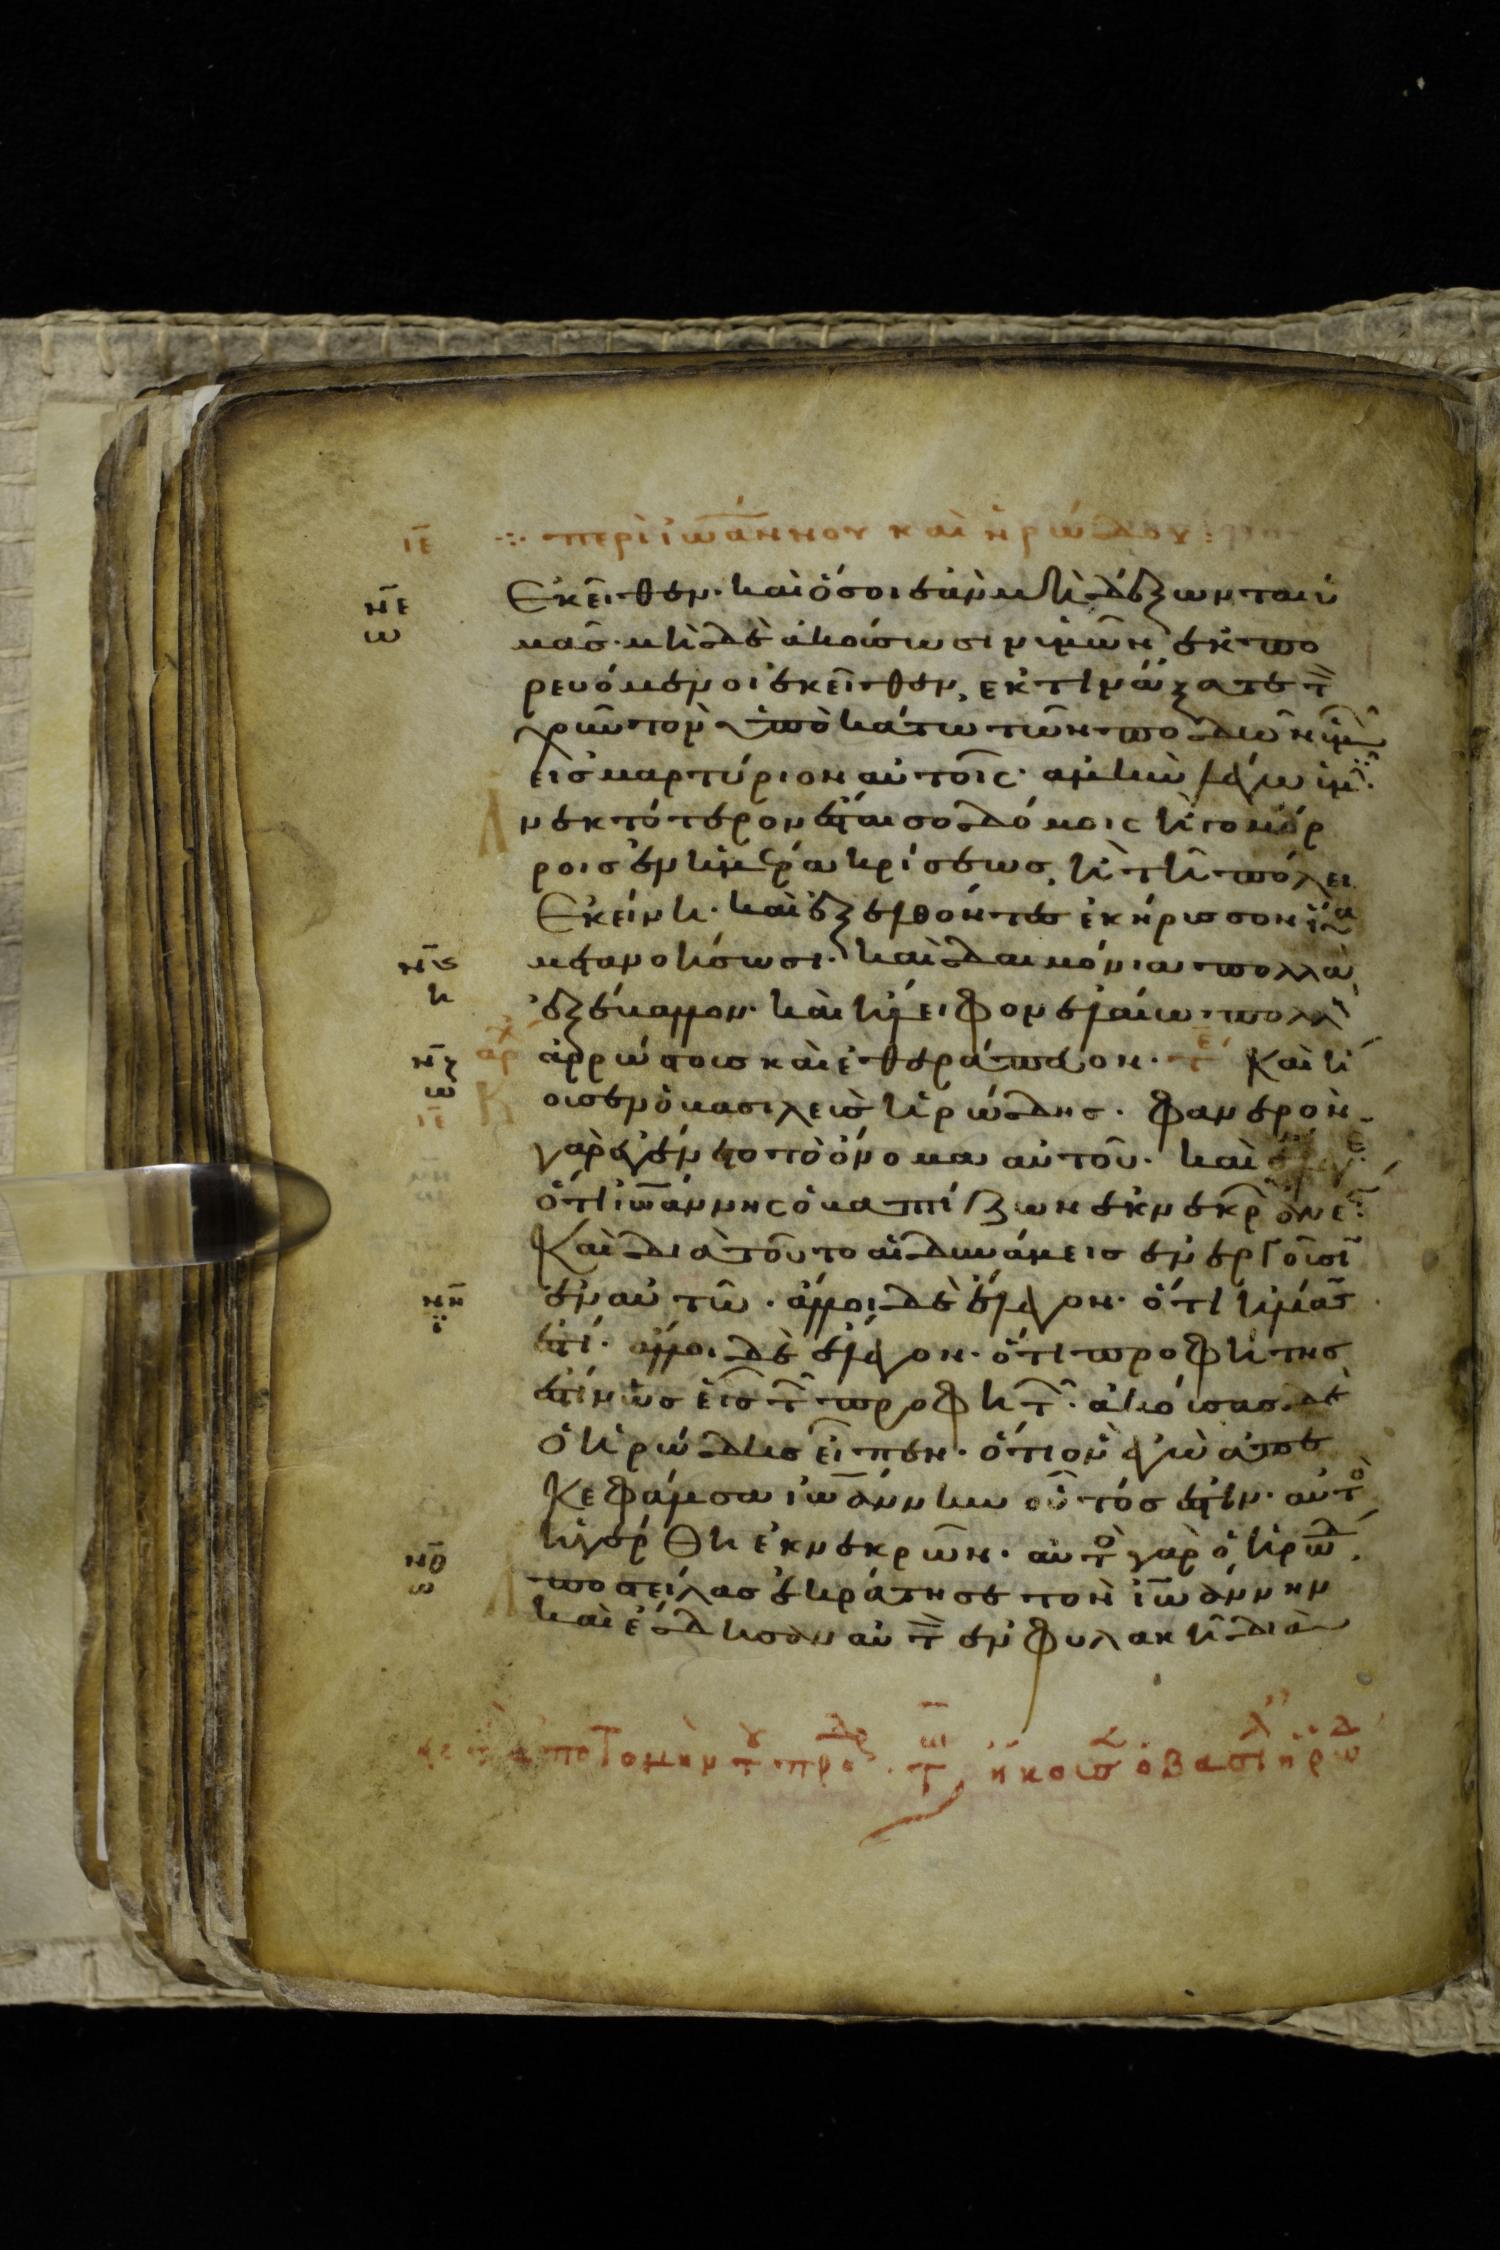 ιε ·:· περὶ ἰωάννου καὶ ἡρώδου :
νε ἐκεῖθεν· καὶ ὅσοι ἐὰν μὴ δέξωνται ὑ
ω μᾶς· μὴ δὲ ἀκούσωσιν ὑμῶν ἐκπο
ρευόμενοι ἐκεῖθεν, ἐκτινάξατε τ̀
χοῦν τὸν ὑποκάτω τῶν ποδῶν ὑμ
εἰς μαρτύριον αὐτοῖς· ἀμὴν λέγω ὑμ̂·
ἀνεκτότερον ἔσται σοδόμοις ἢ γομόρ
ροις ἐν ἡμέρα κρίσεως, ἢ τῆ πόλει
ἐκείνη· καὶ ἐξελθόντες ἐκήρυσσον ἵνα
νς μετανοήσωσι· καὶ δαιμόνια πολλὰ
η ἐξέβαλλον· καὶ ἤλειφον ἐλαίω πολλ
νζ αρχ ἀρρώστους καὶ ἐθεράπευον· τε Καὶ ἤ
ω ιε κουσεν ὁ βασιλεὺς ἡρώδης· φανερὸν
γὰρ ἐγένετο τὸ ὄνομα αὐτοῦ· καὶ ἔλεγε
ὅτι ἰωάννης ὁ βαπτίζων ἐκ νεκρῶν
Καὶ διὰ τοῦτο αἱ δυνάμεις ἐνεργοῦσι
νη ἐν αὐτῶ· ἄλλοι δὲ ἔλεγον· ὅτι ἠλίας
ϊ ἐστί· ἄλλοι δὲ ἔλεγον· ὅτι προφήτης
ἐστὶν ὡς εἷς τ̂ προφητ̂· ἀκούσας δὲ
ὁ ἡρώδης εἶπεν· ὅτι ὃν ἐγὼ ἀπε
κεφάλισα ἰωάννην οὗτός ἐστιν· αὐτὸ
ἠγέρθη ἐκ νεκρῶν· αὐτὸ γὰρ ὁ ἡρώδ
νθ ἀποστείλας ἐκράτησε τὸν ἰωάννην
καὶ ἔδησεν αὐτ̀ ἐν φυλακῆ διὰ
ἀποτομὴν τ προδρ· τ ἤκουσ ὁ βασιλ ἡρώδ